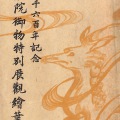 千六百年記念
院御物特別展觀繪葉